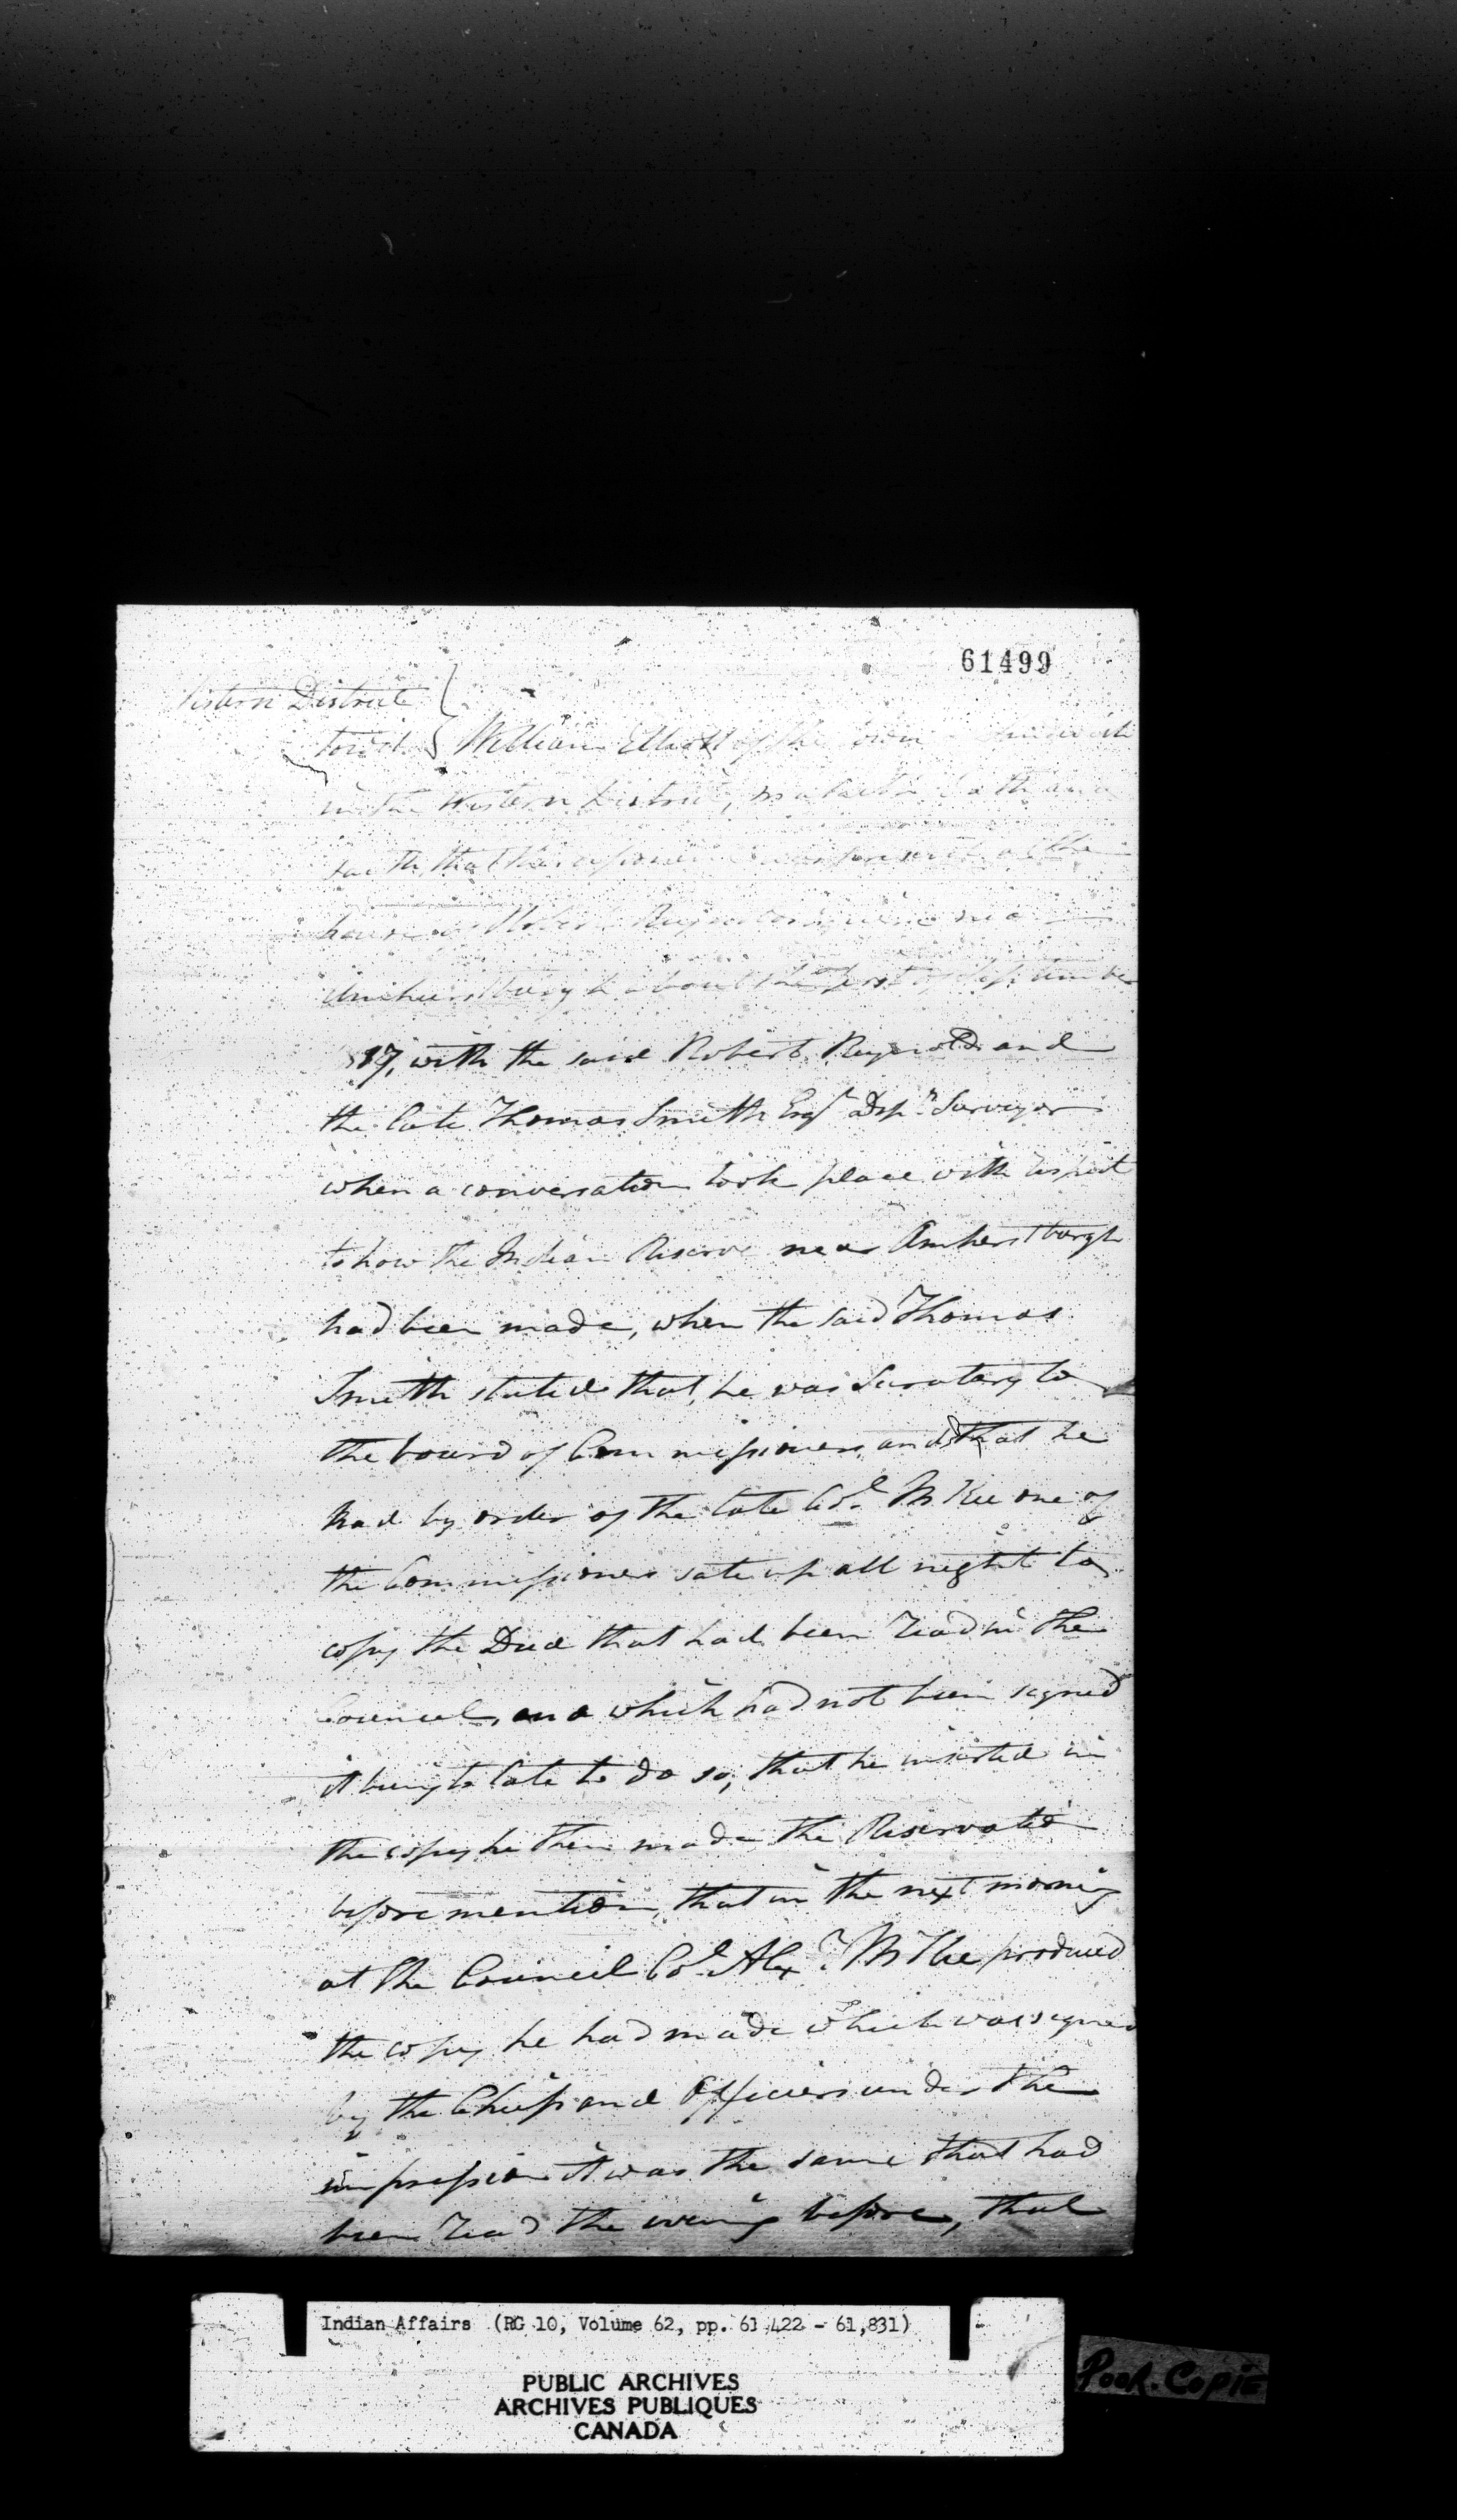 61499
Western District
to wit { William Elliott of the Town Sandwich
in the Western District, maketh Oath and
saith, that this deponent was present at the
house of Robert Reynolds Esquire near
Amherstburgh about the first of September
1817, with the said Robert Reynolds and
the late Thomas Smith Esqr Depy Surveyor
when a conversation took place with respect
to how the Indian Reserve near Amherstburgh
had been made, when the said Thomas
Smith stated that, he was Secratery to
the board of Commissioners, and that he
had by order of the late Col. McKee one of
the Commissioners sate up all night to
copy the Deed that had been read in the
Council, and which had not been signed
it being to late to do so, that he inserted in
the copy he then made the Reservation
before mention, that in the next morning
at the Council Col. Alexr. McKee produced
the copy he had made which was signed
by the Chiefs and Officiers under the
impression it was the same that had
been read the evening before, that
Indian Affairs (RG 10, Volume 62, pp. 61 422 - 61,831)
PUBLIC ARCHIVES
ARCHIVES PUBLIQUES
CANADA
Poor. Copie